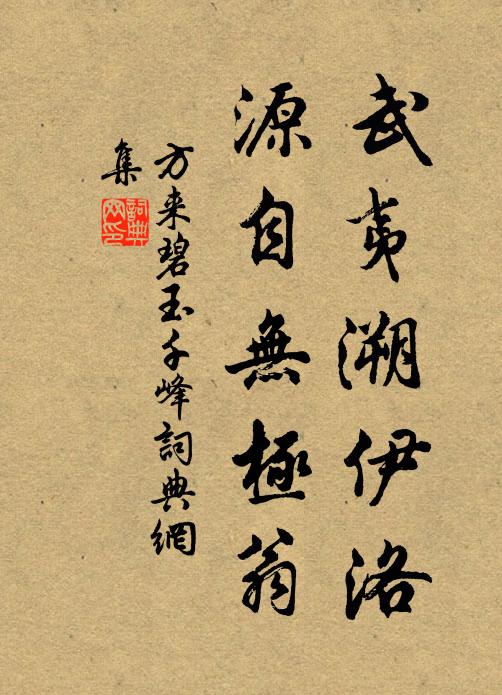 武夷溯伊洛
源自無極翁
方来碧玉千峰詞典網
集
詞典
网印